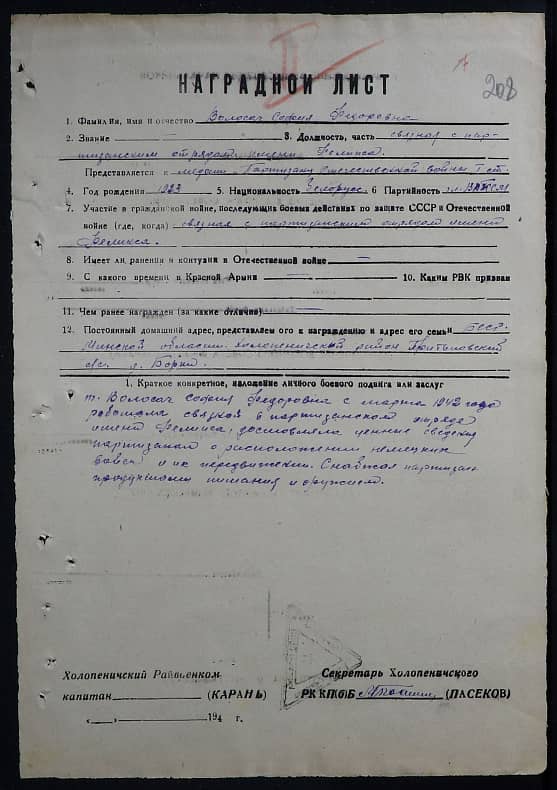 II
208
НАГРАДНОЙ ЛИСТ
1. Фамилия, имя и отчество Волосач София Федоровна
2. Звание — 3. Должность, часть связная с пар-
тизанским отрядом имени
Представляется к медали „Партизану Отечественной войны" I ст.
4. Год рождения 1923 5. Национальность Белорус. 6 Партийность чл. ВЛКСМ
7 Участие в гражданской войне, последующих боевых действиях по защите СССР и Отечественной
войне (где, когда) связная с партизанским отрядом имени
8. Имеет ли ранения и контузии в Отечественной войне —
9. С какого времени в Красной Армии — 10. Каким РВК призван
—
11. Чем ранее награжден (за какие отличия) —
12. Постоянный домашний адрес, представляемого к награждению и адрес его семьи БССР
Минской области Холопеничский район
д. Борки
1. Краткое конкретное, изложение личного боевого подвига или заслуг
т. Волосач София Федоровна с марта 1942 года
работала связной в партизанском отряде
имени доставляла ценные сведения
партизанам о расположении немецких
войск и их передвижении. Снабжал партизан
продуктами питания и оружием.
Холопеничский Райвоенком
капитан (КАРАНЬ)
„ „ 194 г.
Секретарь Холопеничского
РК КП(б)Б (ПАСЕКОВ)